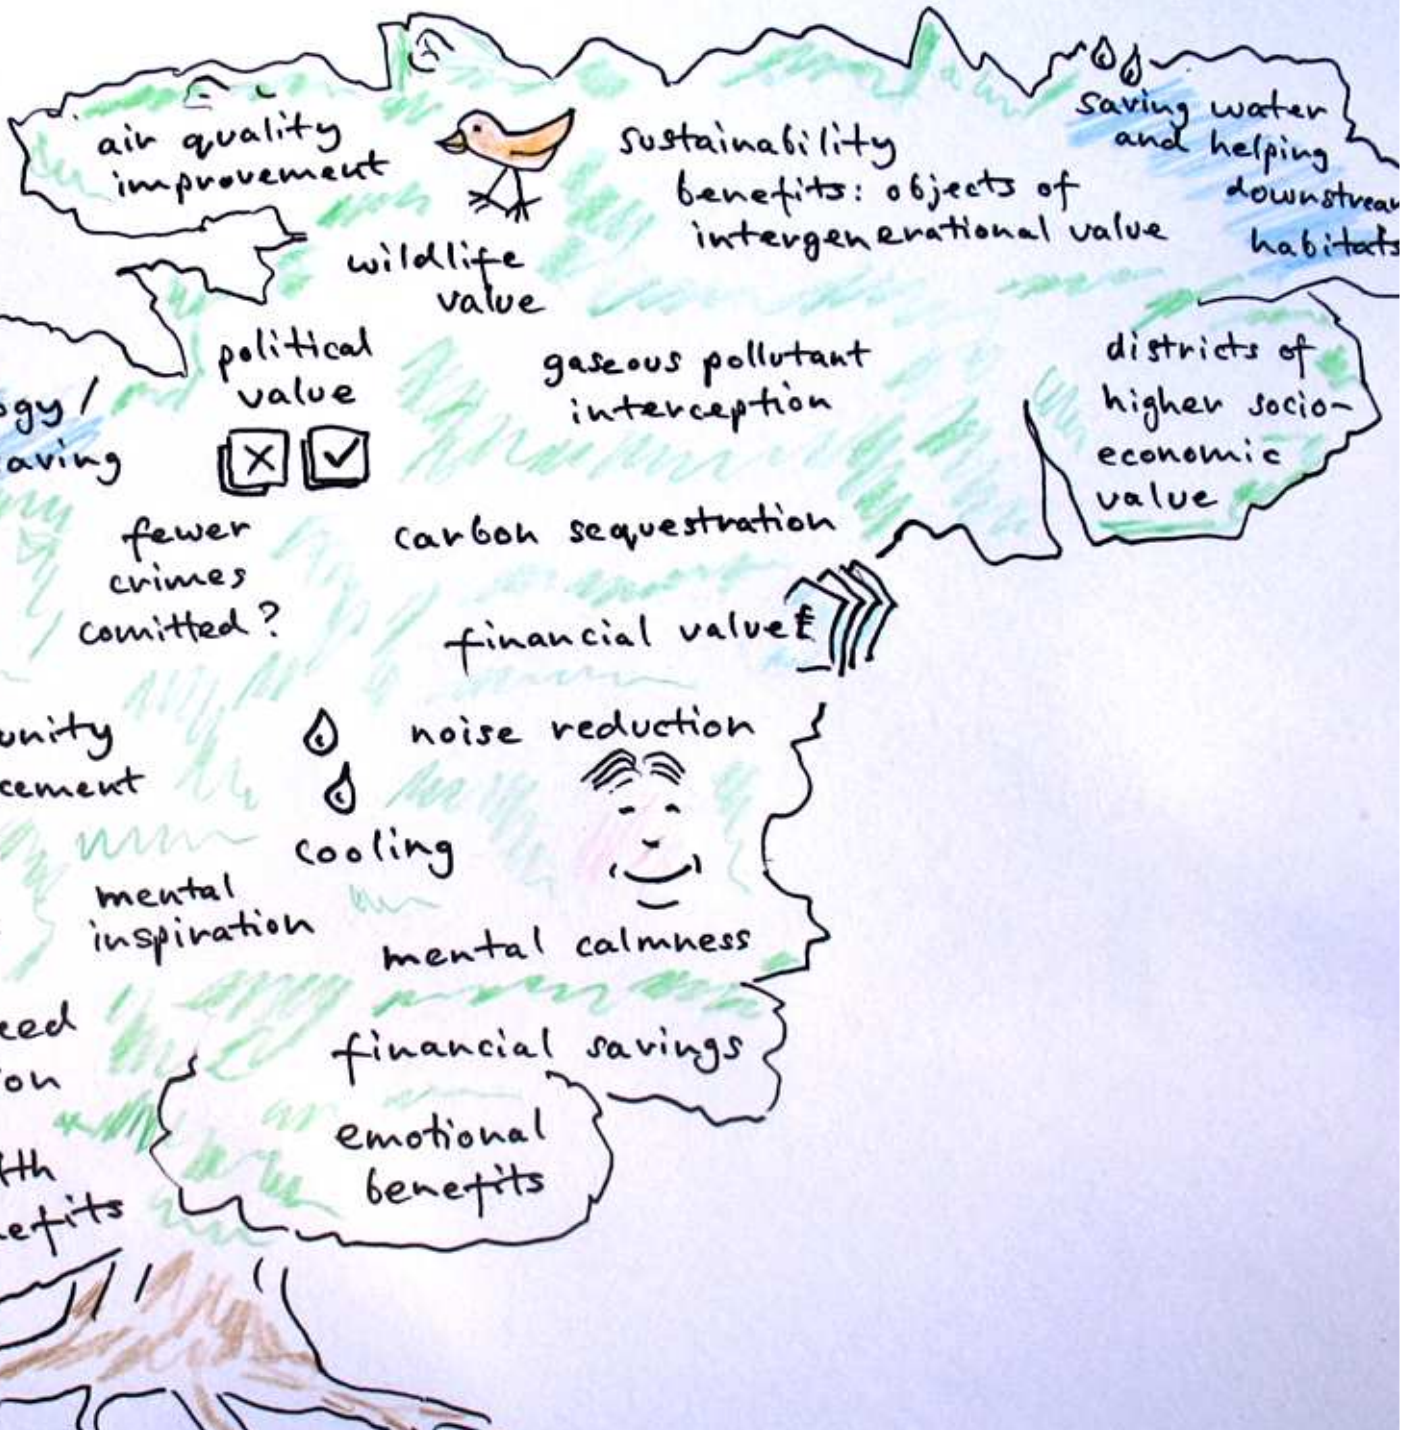 air quality
improvement
sustainability
benefits: objects of
intergenerational value
saving water
and helping
downstream
habitats
wildlife
value
political
value
gaseous pollutant
interception
districts of
higher socio-
economic
value
ogy/
aving
fewer
crimes
comitted?
carbon sequestration
financial value £
unity
cement
noise reduction
cooling
mental
inspiration
mental calmness
eed
ion
financial savings
emotional
benefits
lth
efits